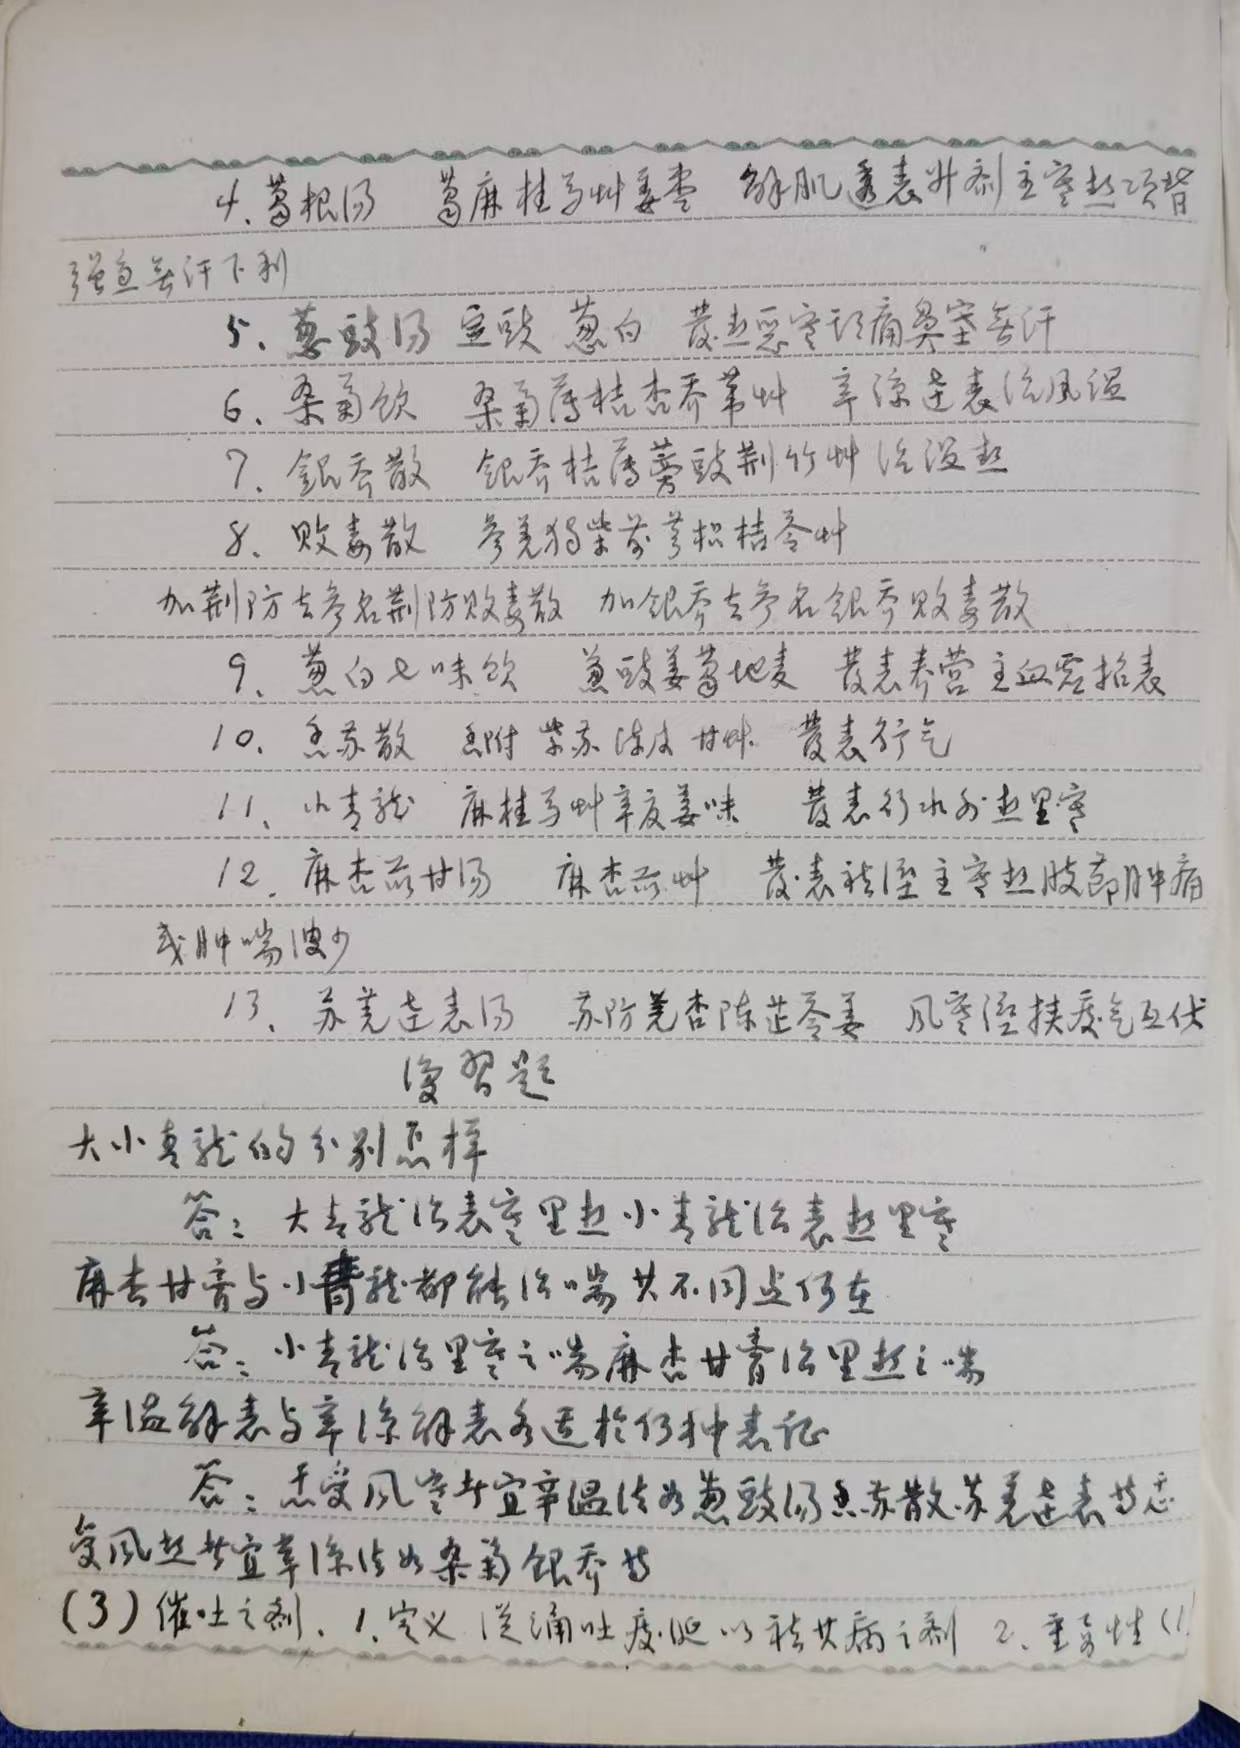 4、葛根汤 葛麻桂芍艹姜枣 解肌透表升剂主寒热项背
强急无汗下利
5、葱豉汤 豆豉 葱白 发热恶寒头痛鼻塞无汗
6、桑菊饮 桑菊薄桔杏乔苇艹 辛凉达表治风温
7、銀乔散 銀乔桔薄蒡豉荆竹艹治温热
8、败毒散 参羌独柴前芎枳桔苓艹
加荆防去参名荆防败毒散 加銀乔去参名銀乔败毒散
9、葱白七味饮 葱豉姜葛地麦 发表养营主血虚招表
10、香苏散 香附 紫苏 陈皮 甘艹 发表行气
11、小青龙 麻桂芍艹辛夏姜味 发表行水外热里寒
12、麻杏苡甘汤 麻杏苡艹 发表祛湿主寒热肢节肿痛
或肿喘溲少
13、苏羌达表汤 苏防羌杏陈芷苓姜 风寒湿挟痰气互伏
復習题
大小青龙的分别怎样
答：大青龙治表寒里热小青龙治表热里寒
麻杏甘膏与小青龙都能治喘其不同点何在
答：小青龙治里寒之喘麻杏甘膏治里热之喘
辛温解表与辛凉解表各适於何种表证
答：患受风寒者宜辛温法如葱豉汤香苏散苏羌达表等患
受风热者宜辛凉法如桑菊銀乔等
(3)催吐之剂、1、定义 从涌吐痰涎以祛其病之剂 2、重要性(1)